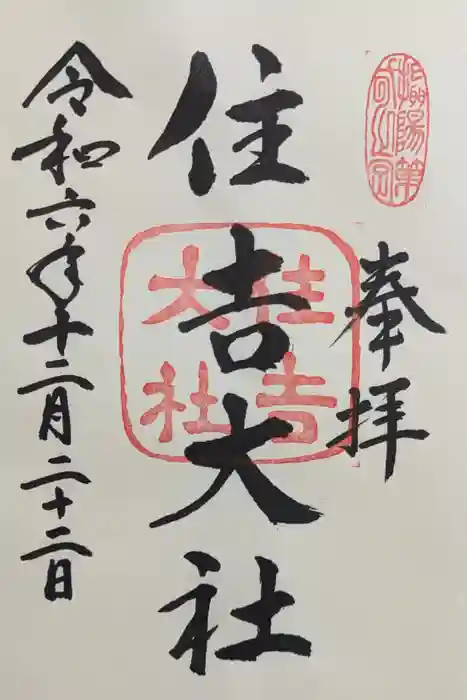 攝陽第
奉拝
住吉大社
住吉
大社
令和六年十二月二十二日